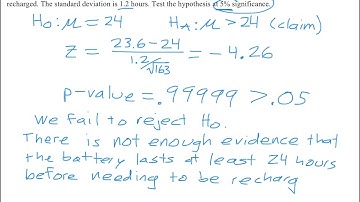 recharged. The standard deviation is 1.2 hours. Test the hypothesis at 5% significance.
H₀: μ = 24 Hₐ: μ > 24 (claim)
z = (23.6 - 24) / (1.2/√163) = -4.26
p-value = .99999 > .05
we fail to reject H₀.
There is not enough evidence that
the battery lasts at least 24 hours
before needing to be recharg